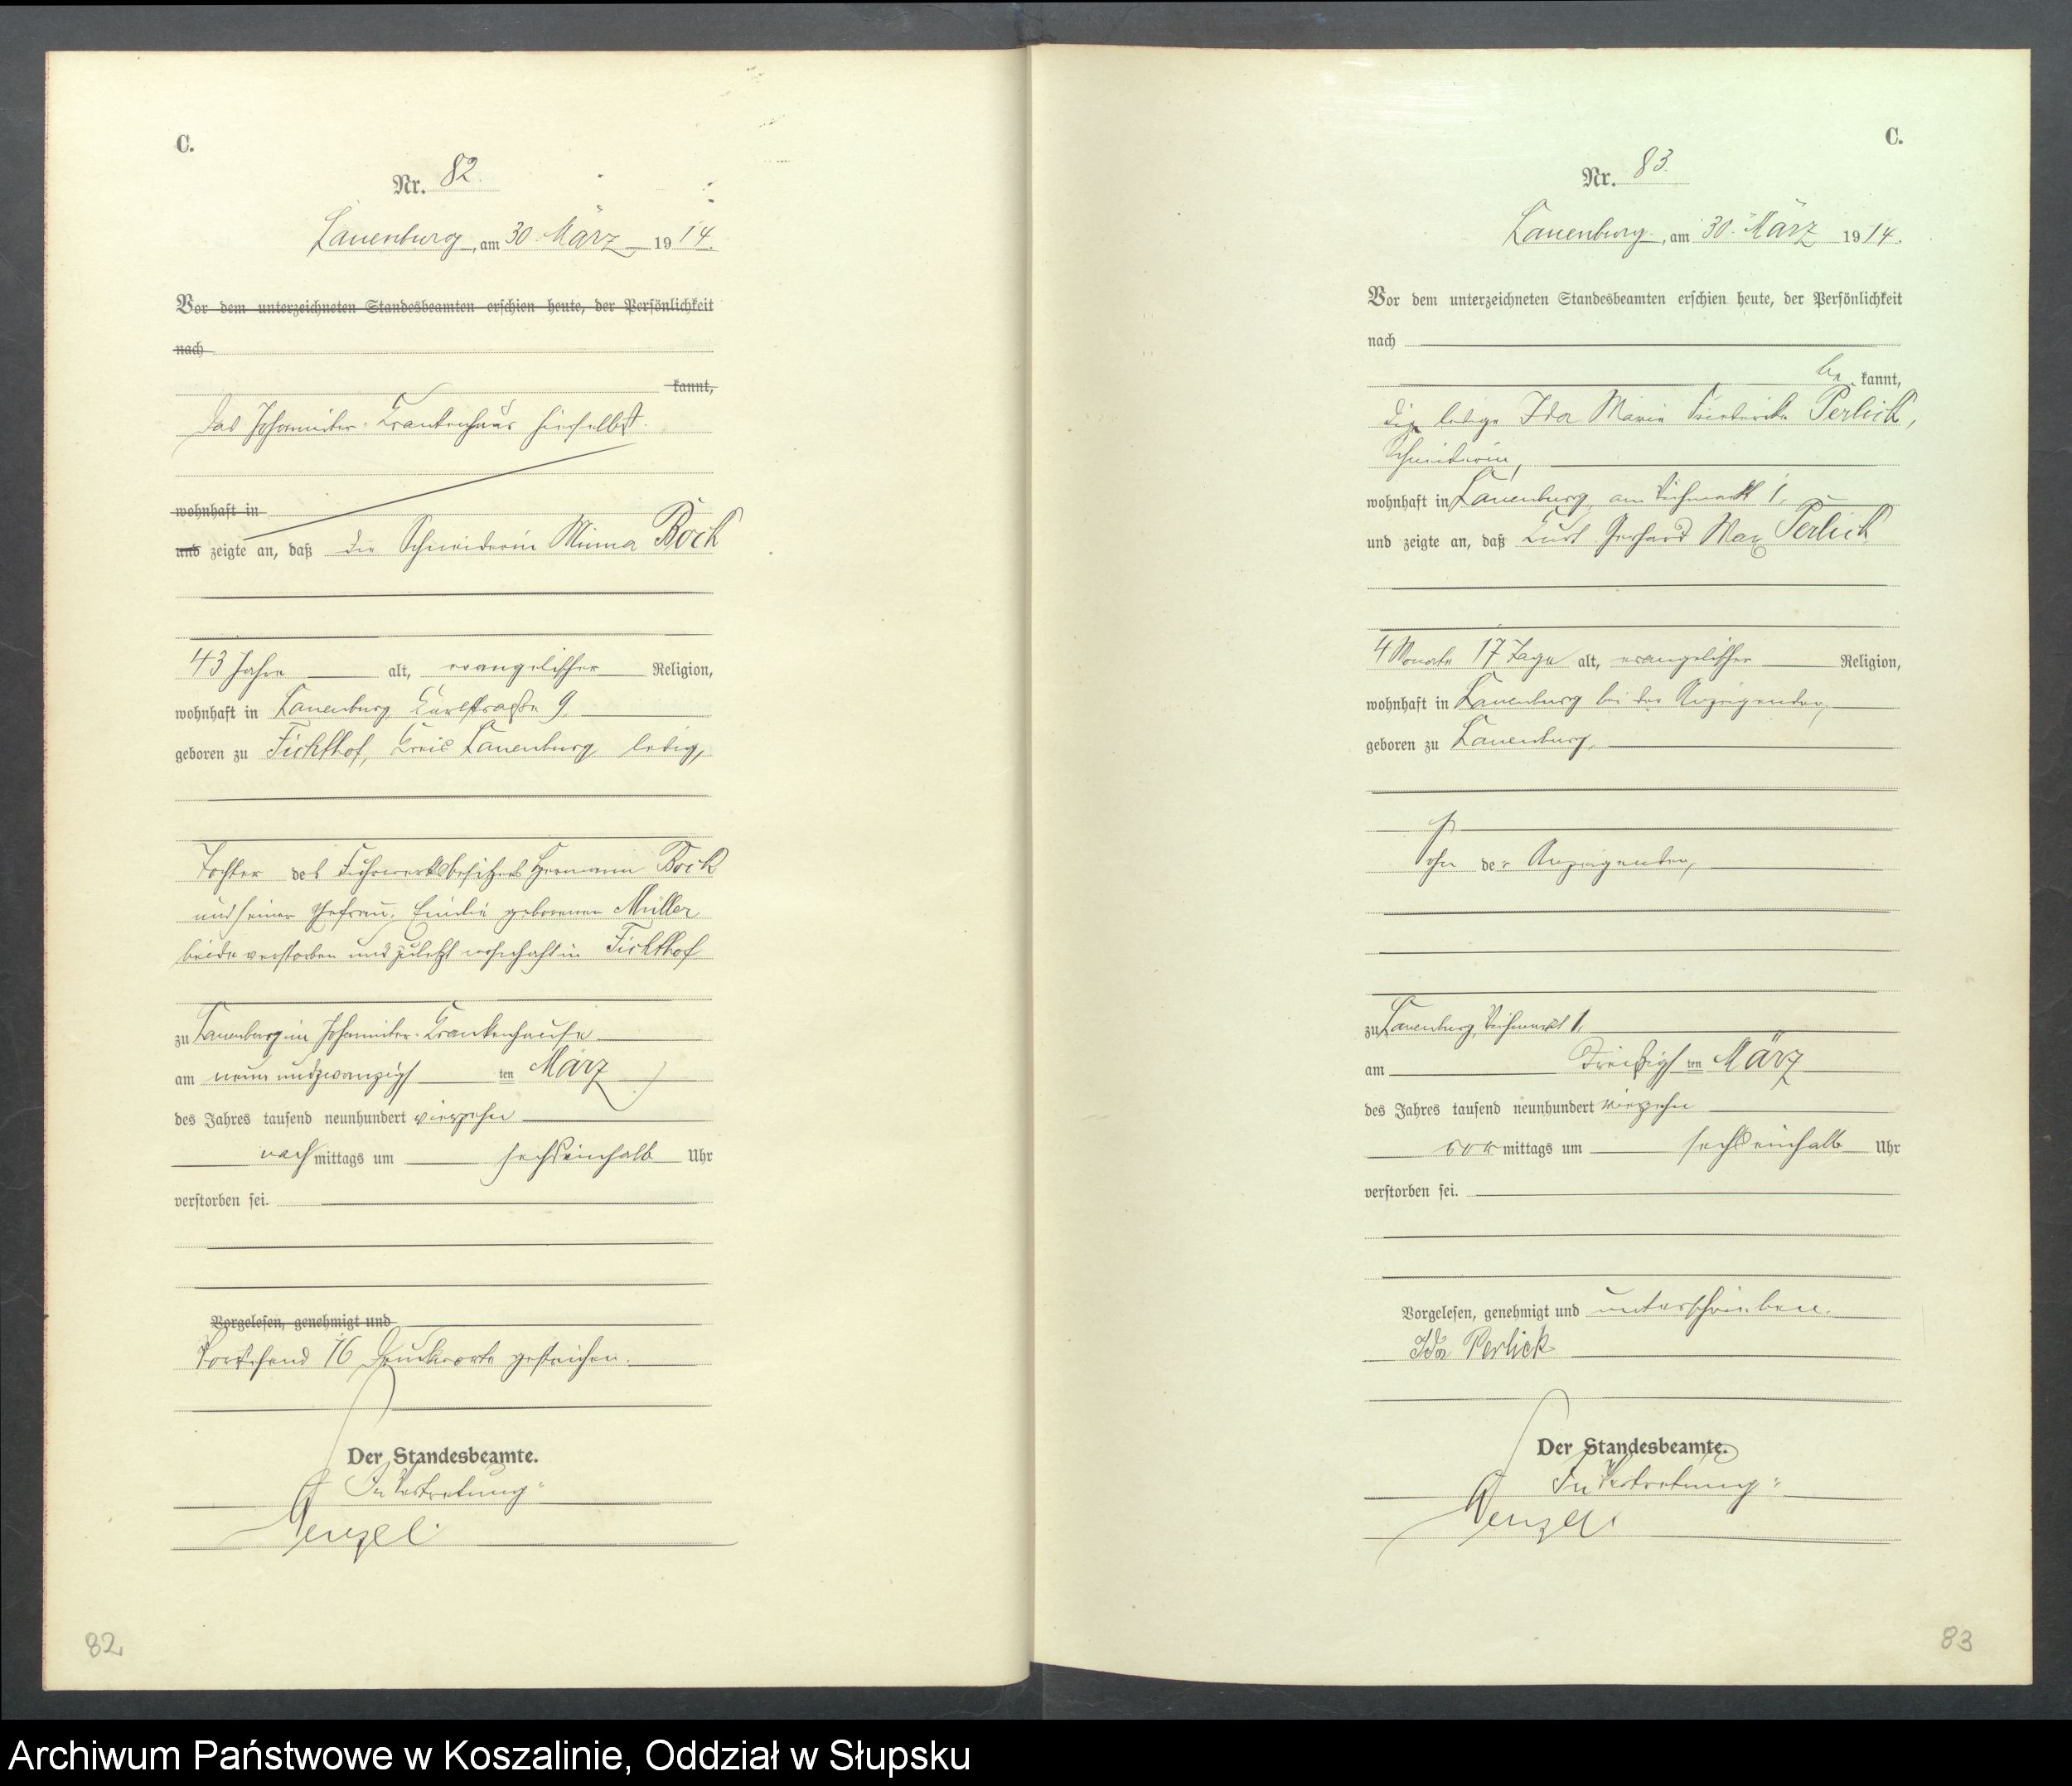 C.
Nr. 82.
Lauenburg, am 30. März 1914.
Vor dem unterzeichneten Standesbeamten erschien heute, der Persönlichkeit
nach
kannt,
das Johanniter-Krankenhaus hierselbst.
wohnhaft in
und zeigte an, daß die Schneiderin Minna Bock
43 Jahre alt, evangelischer Religion,
wohnhaft in Lauenburg
geboren zu Fichthof, Kreis Lauenburg, ledig,
Tochter des Fuhrwerksbesitzers Hermann Bock
und seiner Ehefrau, Emilie geborenen Müller
beide verstorben und zuletzt wohnhaft in Fichthof
zu Lauenburg im Johanniter-Krankenhause
am neunundzwanzigsten März
des Jahres tausend neunhundert vierzehn
nachmittags um sechseinhalb Uhr
verstorben sei.
Vorgelesen, genehmigt und
Vorstehend 16 Druckworte gestrichen.
Der Standesbeamte.
In Vertretung:
Wenzel.
82
C.
Nr. 83.
Lauenburg, am 30. März 1914.
Vor dem unterzeichneten Standesbeamten erschien heute, der Persönlichkeit
nach
bekannt,
die ledige Ida Marie Friederike Perlick,
Schneiderin,
wohnhaft in Lauenburg, am Viehmarkt 1,
und zeigte an, daß Kurt Gerhard Max Perlick
4 Monate 17 Tage alt, evangelischer Religion,
wohnhaft in Lauenburg bei der Anzeigenden,
geboren zu Lauenburg,
Sohn der Anzeigenden,
zu Lauenburg, Viehmarkt 1,
am dreißigsten März
des Jahres tausend neunhundert vierzehn
vormittags um sechseinhalb Uhr
verstorben sei.
Vorgelesen, genehmigt und unterschrieben.
Ida Perlick
Der Standesbeamte.
In Vertretung:
Wenzel.
83
Archiwum Państwowe w Koszalinie, Oddział w Słupsku